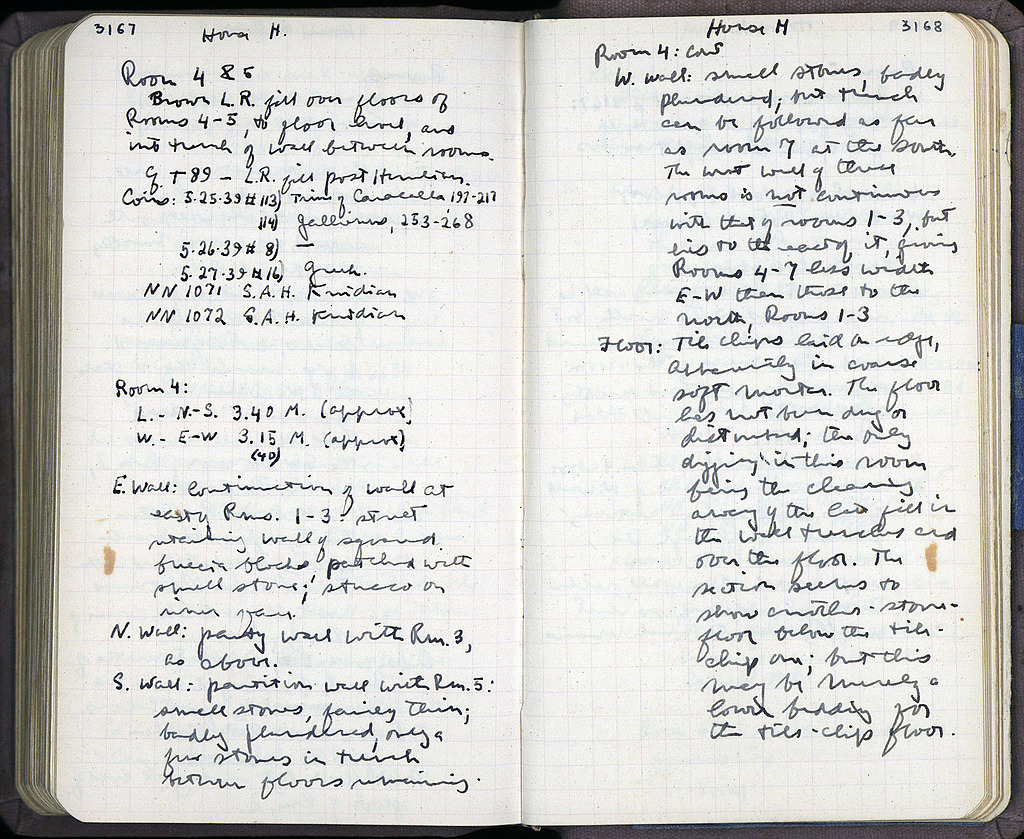 3167
House H.
Room 4 & 5
Brown L.R. fill over floors of
Rooms 4-5, to floor level, and
into trench of wall between rooms.
L.R. fill post Herulian.
Coins: 5.25.39 # 113) Time of Caracalla 197-217
114) Gallienus, 253-268
5.26.39 # 8) —
5.27.39 # 16) Greek.
NN 1071 S.A.H. Knidian
NN 1072 S.A.H. Knidian
Room 4:
L. - N-S. 3.40 M. (approx)
W. - E-W 3.15 M. (approx)
(40)
E. Wall: Continuation of wall at
east of Rms. 1-3: street
retaining wall of squared
breccia blocks patched with
small stones; stucco on
inner face.
N. Wall: party wall with Rm. 3,
as above.
S. Wall: partition wall with Rm. 5:
small stones, fairly thin;
badly plundered, only a
few stones in trench
between floors remaining.
House H
3168
Room 4: cont
W. Wall: small stones, badly
plundered; but trench
can be followed as far
as room 7 at the south
The west wall of these
rooms is not continuous
with that of rooms 1-3, but
lies to the east of it, giving
Rooms 4-7 less width
E-W than those to the
north, Rooms 1-3
Floor: Tile chips laid on edge,
apparently in coarse
soft mortar. The floor
has not been dug or
disturbed; the only
digging in this room
being the clearing
away of the late fill in
the wall trenches and
over the floor. The
section seems to
show another - stone -
floor below the tile-
chip one; but this
may be merely a
lower bedding for
the tile-chip floor.